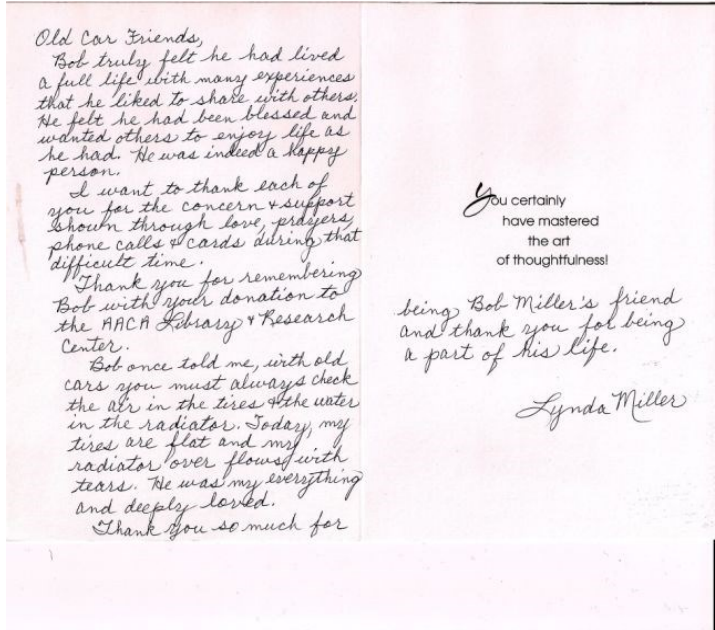 Old Car Friends,
Bob truly felt he had lived
a full life with many experiences
that he liked to share with others.
He felt he had been blessed and
wanted others to enjoy life as
he had. He was indeed a happy
person.
I want to thank each of
you for the concern & support
shown through love, prayers,
phone calls & cards during that
difficult time.
Thank you for remembering
Bob with your donation to
the AACA Library & Research
Center.
Bob once told me, with old
cars you must always check
the air in the tires & the water
in the radiator. Today, my
tires are flat and my
radiator over flows with
tears. He was my everything
and deeply loved.
Thank you so much for
You certainly
have mastered
the art
of thoughtfulness!
being Bob Miller's friend
and thank you for being
a part of his life.
Lynda Miller